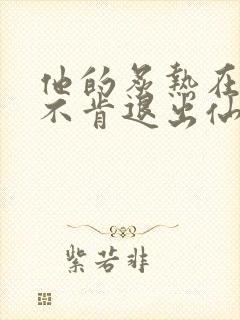 他的炙热在
不肯退出仙
紫若非